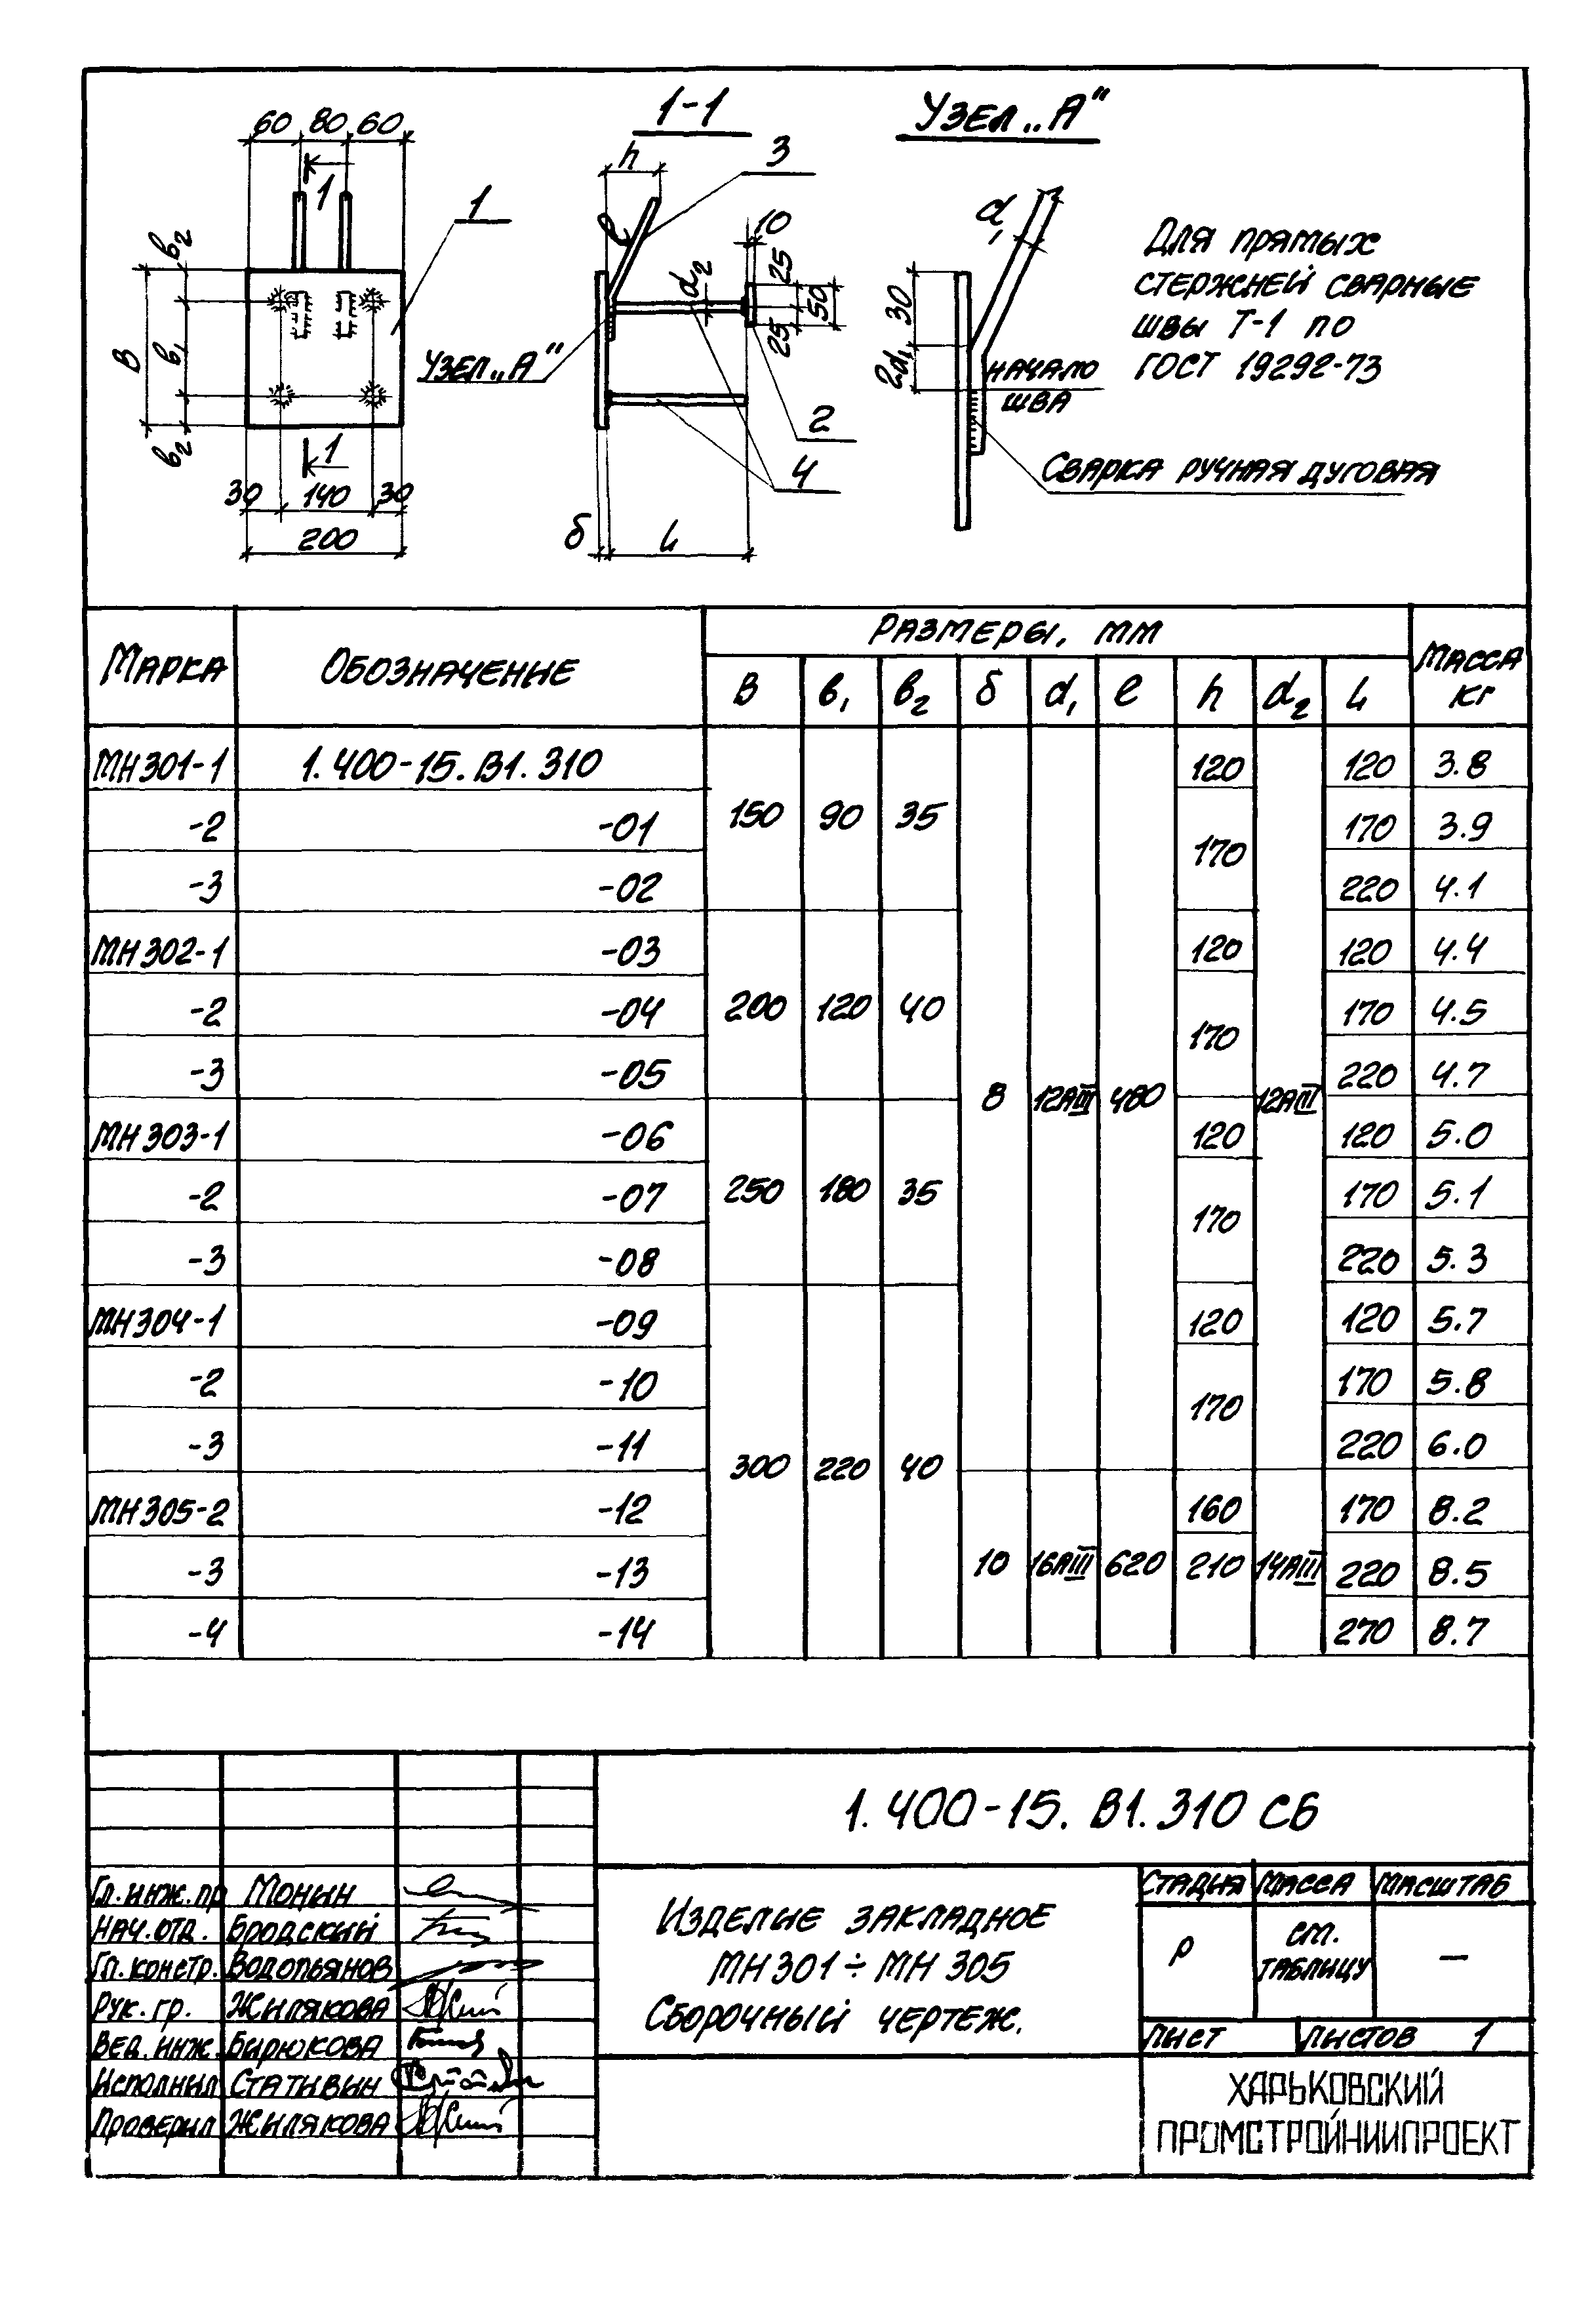 1-1
УЗЕЛ „А"
60 80 60
1
1
h
3
l
d₂
10
25
50
25
d₁
30
2d₁
ДЛЯ ПРЯМЫХ
СТЕРЖНЕЙ СВАРНЫЕ
ШВЫ Т-1 ПО
ГОСТ 19292-73
в₂
В
в₁
в₂
УЗЕЛ „А"
НАЧАЛО
ШВА
2
4
1
СВАРКА РУЧНАЯ ДУГОВАЯ
30 140 30
200
δ L
МАРКА ОБОЗНАЧЕНИЕ РАЗМЕРЫ, ММ МАССА КГ
В в₁ в₂ δ d₁ l h d₂ L
МН301-1 1.400-15.В1.310 120 120 3.8
-2 -01 150 90 35 170 170 3.9
-3 -02 220 4.1
МН302-1 -03 120 120 4.4
-2 -04 200 120 40 170 170 4.5
-3 -05 8 12АIII 480 12АIII 220 4.7
МН303-1 -06 120 120 5.0
-2 -07 250 180 35 170 170 5.1
-3 -08 220 5.3
МН304-1 -09 120 120 5.7
-2 -10 170 170 5.8
-3 -11 300 220 40 220 6.0
МН305-2 -12 160 170 8.2
-3 -13 10 16АIII 620 210 14АIII 220 8.5
-4 -14 270 8.7
1.400-15.В1.310 СБ
ГЛ.ИНЖ.ПР МОНИН
НАЧ.ОТД. БРОДСКИЙ
ГЛ.КОНСТР. ВОДОПЬЯНОВ
РУК.ГР. ЖИЛЯКОВА
ВЕД.ИНЖ. БИРЮКОВА
ИСПОЛНИЛ СТАТИВИН
ПРОВЕРИЛ ЖИЛЯКОВА
ИЗДЕЛИЕ ЗАКЛАДНОЕ
МН301÷МН305
СБОРОЧНЫЙ ЧЕРТЕЖ.
СТАДИЯ МАССА МАСШТАБ
Р СМ. ТАБЛИЦУ —
ЛИСТ ЛИСТОВ 1
ХАРЬКОВСКИЙ
ПРОМСТРОЙНИИПРОЕКТ